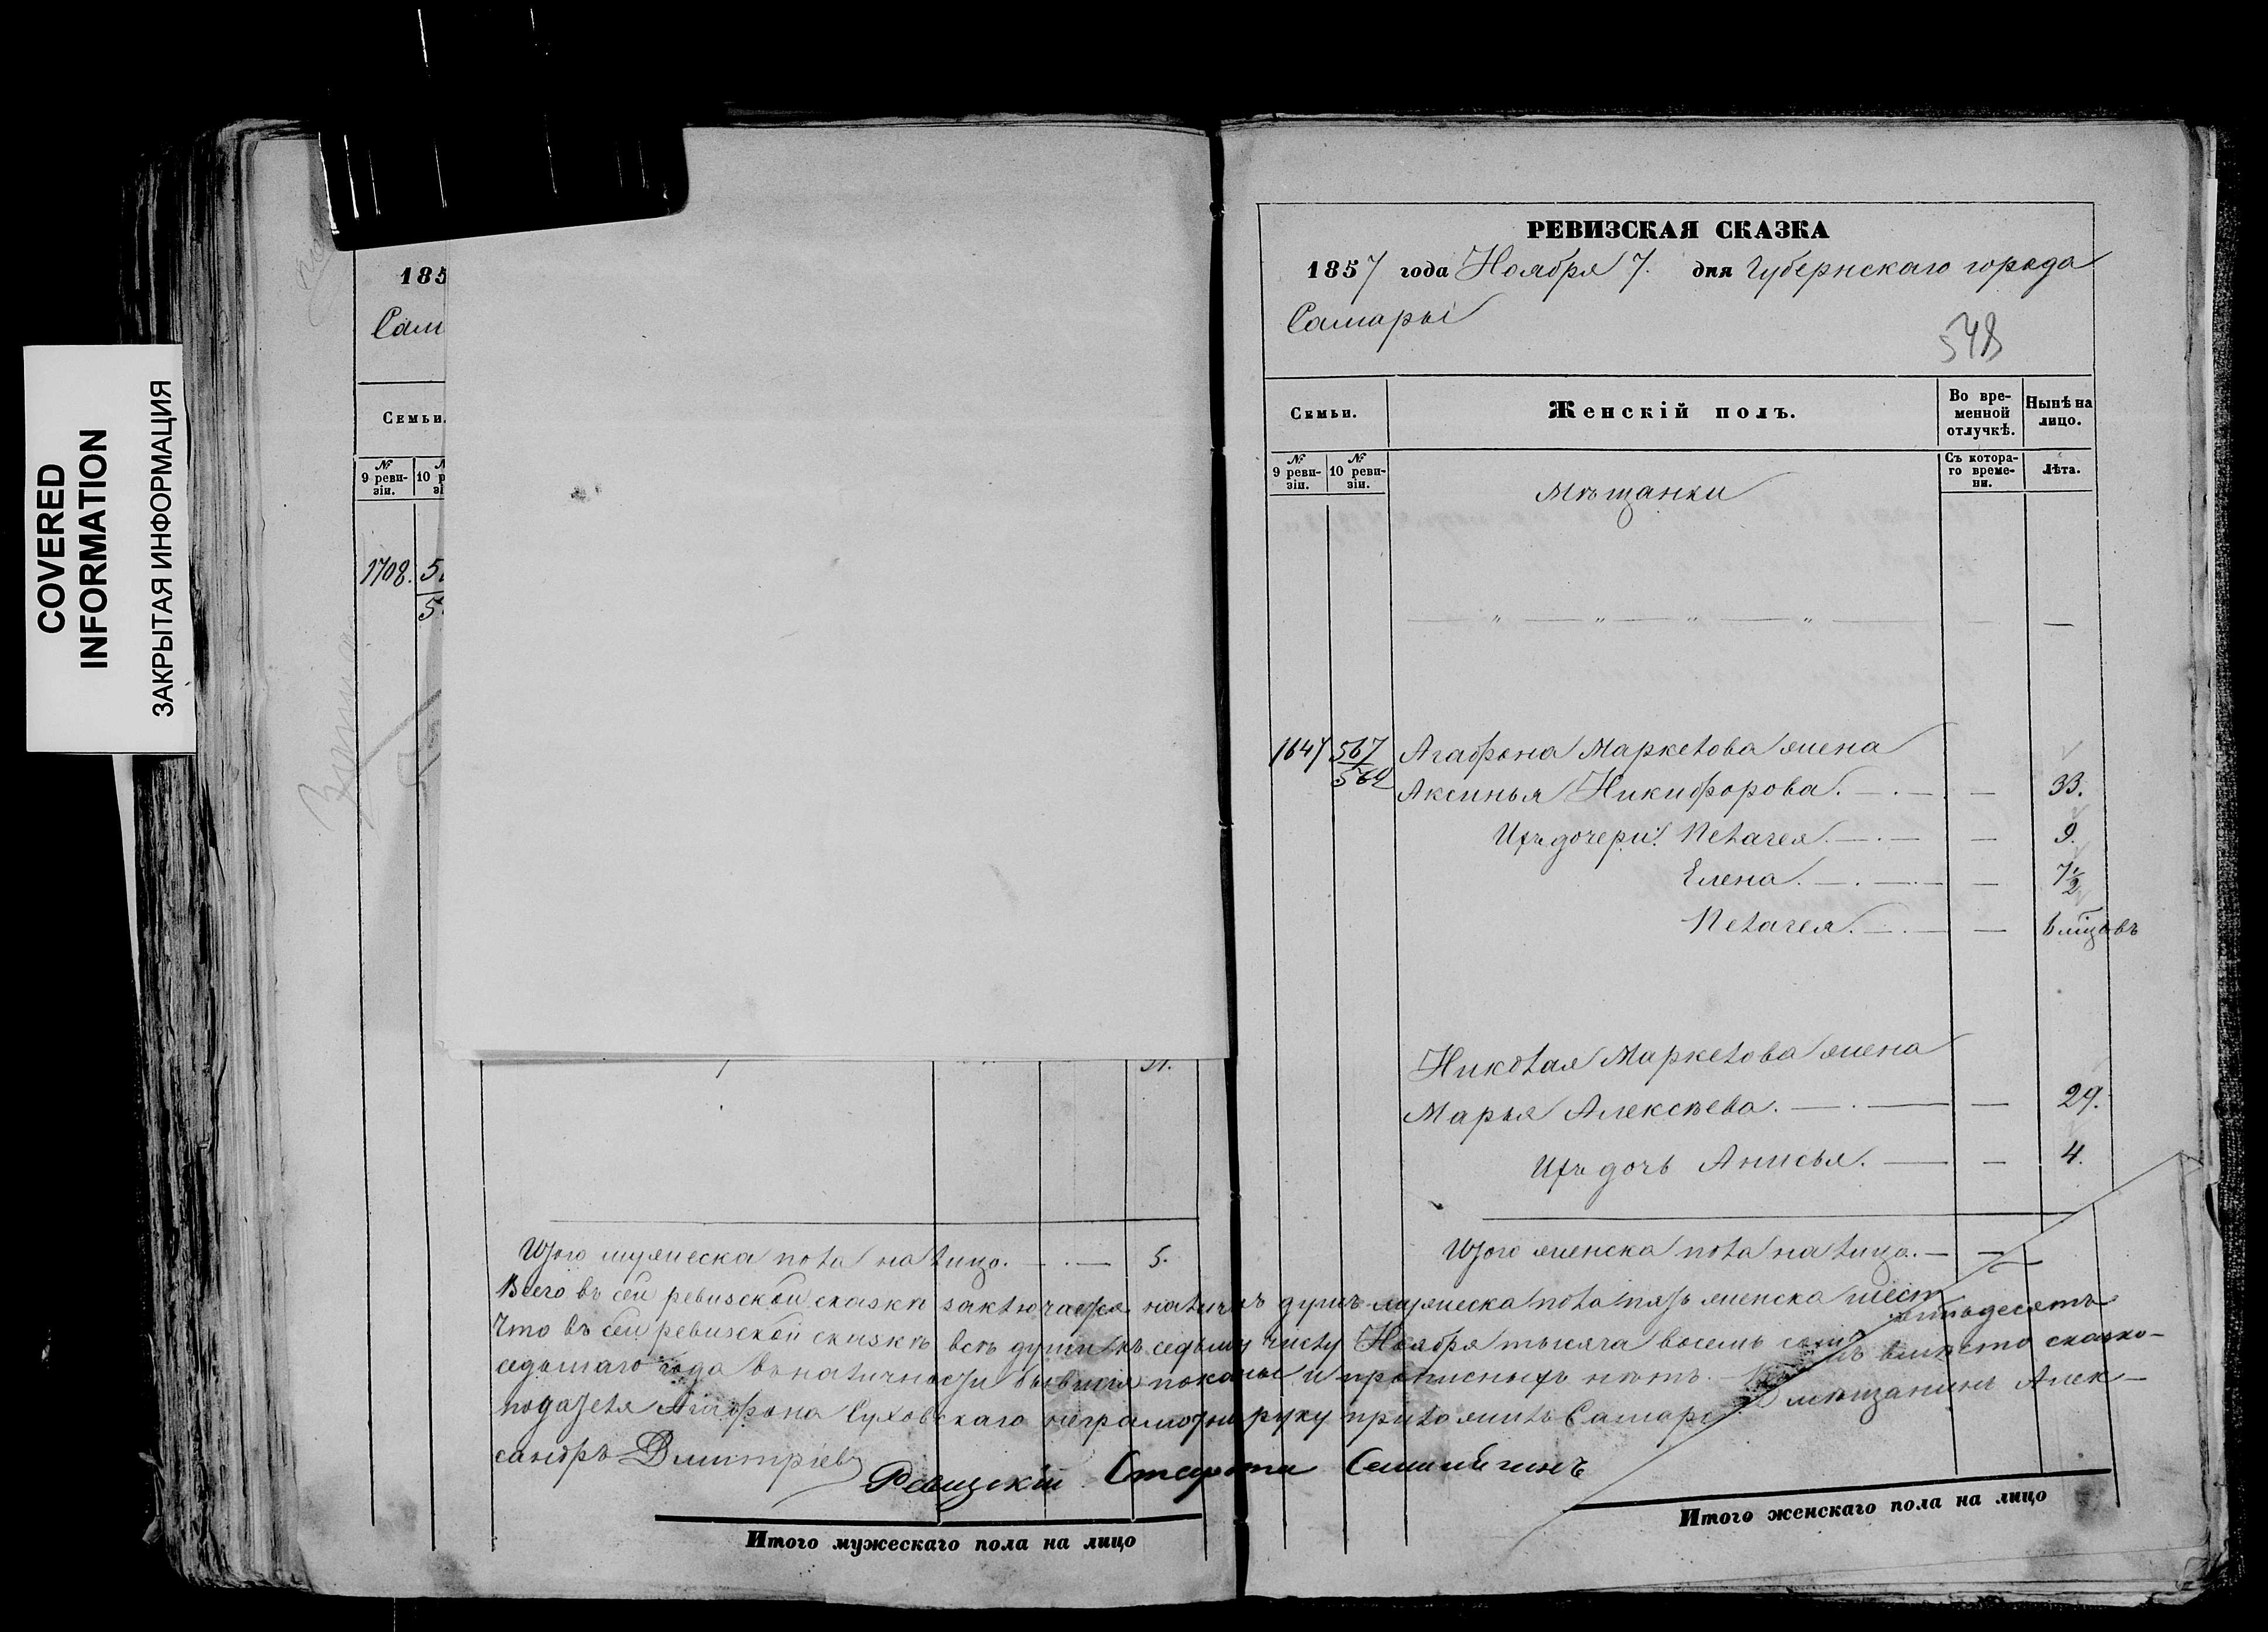 COVERED
INFORMATION
ЗАКРЫТАЯ ИНФОРМАЦИЯ
185
Сам
Семьи.
№ 9 реви-зіи.
10 р
зі
1708.
5
5
Итого мужеска пола на лицо. — . — 5.
РЕВИЗСКАЯ СКАЗКА
1857 года Ноября 7. дня Губернскаго города
Самары
548
Семьи.
Женскій полъ.
Во вре-менной отлучкѣ.
Нынѣ на лицо.
№ 9 реви-зіи.
№ 10 реви-зіи.
Съ котора-го време-ни.
Лѣта.
Мѣщанки
1647 567 Агафона Маркелова жена
560 Аксинья Никифорова. — . — — 33.
Ихъ дочери: Пелагея. — . — — 9.
Елена. — . — . — — 7½
Пелагея. — . — — 6 мцовъ
Николая Маркелова жена
Марья Алексѣева. — . — — 29.
Ихъ дочь Анисья. — — 4.
Итого женска пола на лицо. — —
Всего въ сей ревизской сказкѣ заключается наличныхъ душъ мужеска пола пять женска шесть
Что въ сей ревизской сказкѣ всѣ души къ седьмому числу Ноября тысяча восемь сотъ пятьдесятъ
седьмаго года въ наличности бывшія показаны и прописныхъ нѣтъ. вмѣсто сказко-
подателя Агафона Суховскаго неграмотн руку приложилъ Самарс мѣщанинъ Алек-
сандръ Дмитріевъ
Ревизскій Староста
Итого мужескаго пола на лицо
Итого женскаго пола на лицо